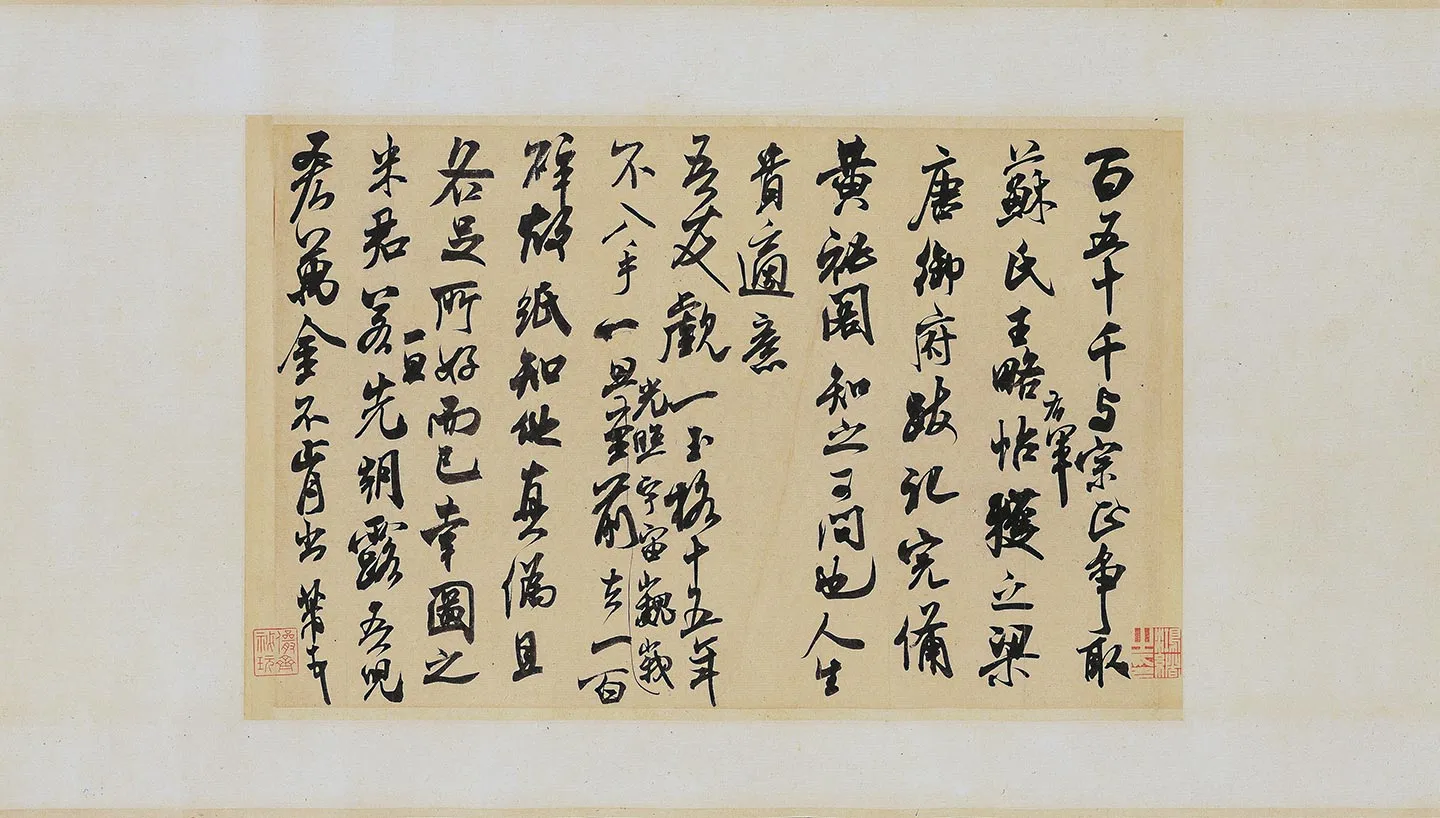 百五十千与宗正争取
右軍
蘇氏王略帖獲之梁
唐御府跋記完備
黄祕閣知之可問也人生
貴適意
吾友覷一玉格十五年
光照宇宙巍峩
不入手一旦至前去一百
碎故紙知他真偽且
各足所好而已幸圖之
一旦
米君若先朝露吾兒
吝萬金不肯出芾頓首